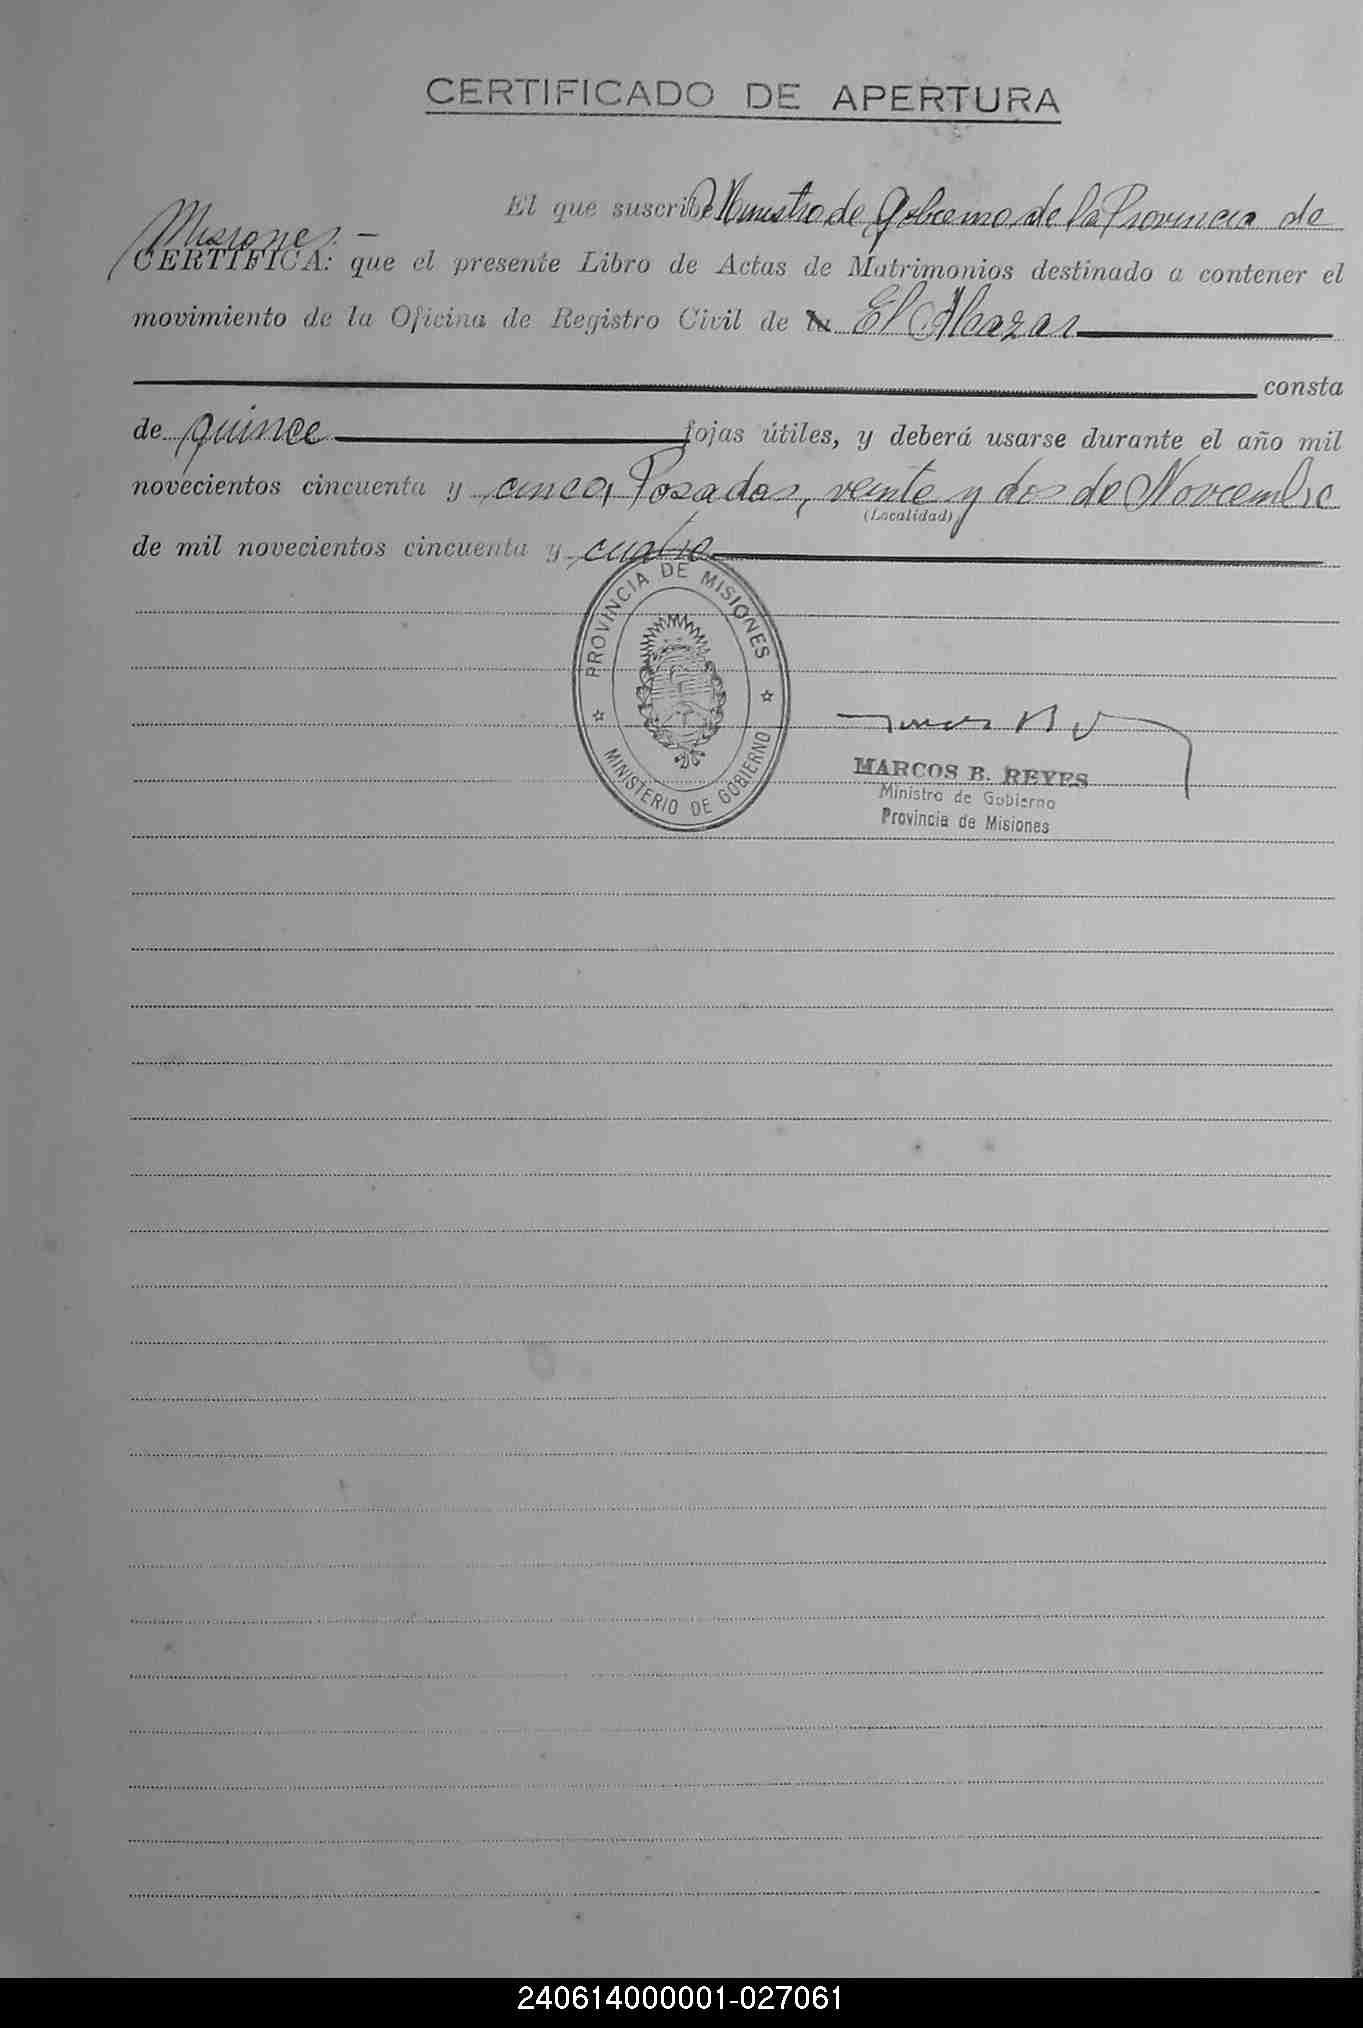 CERTIFICADO DE APERTURA
El que suscribe Ministro de Gobierno de la Provincia de
Misiones.-
CERTIFICA: que el presente Libro de Actas de Matrimonios destinado a contener el
movimiento de la Oficina de Registro Civil de la El Alcazar
consta
de quince fojas útiles, y deberá usarse durante el año mil
novecientos cincuenta y cinco, Posadas, veinte y dos de Noviembre
(Localidad)
de mil novecientos cincuenta y cuatro
PROVINCIA DE MISIONES
MINISTERIO DE GOBIERNO
MARCOS B. REYES
Ministro de Gobierno
Provincia de Misiones
240614000001-027061